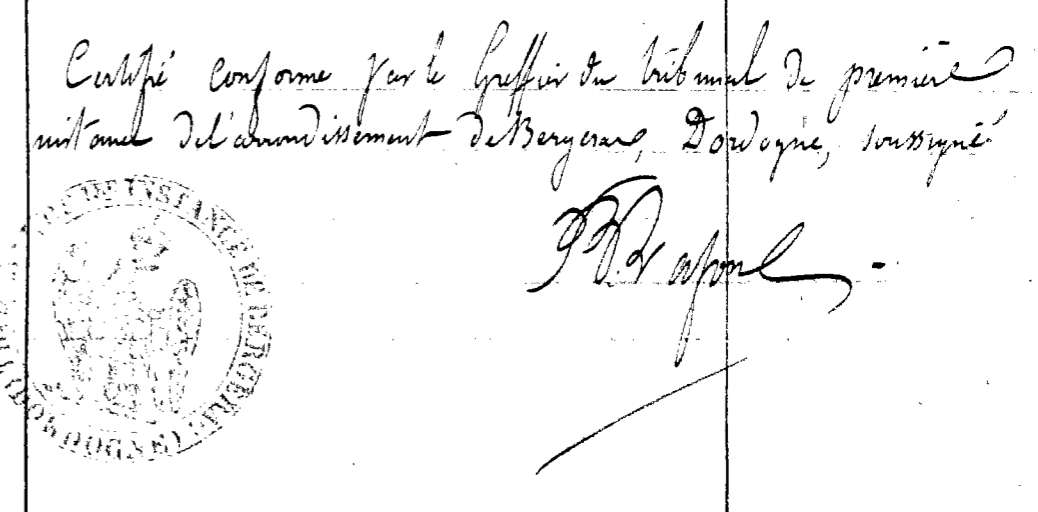 Certifié conforme par le Greffier du tribunal de première
instance de l'arrondissement de Bergerac, Dordogne, soussigné
INSTANCE DE BERGERAC